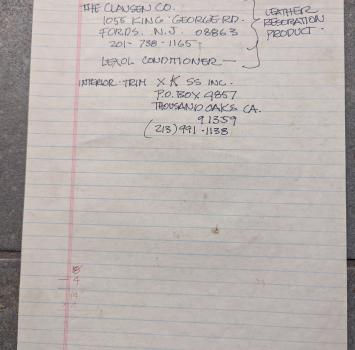 THE CLAUSEN CO.
1055 KING GEORGE RD.
FORDS. N.J. 08863
201-738-1165
LEATHER
RESORATION
PRODUCT.
LEXOL CONDITIONER —
INTERIOR TRIM XK SS INC.
P.O. BOX 4857
THOUSAND OAKS CA.
91359
(213) 991-1138
18
4